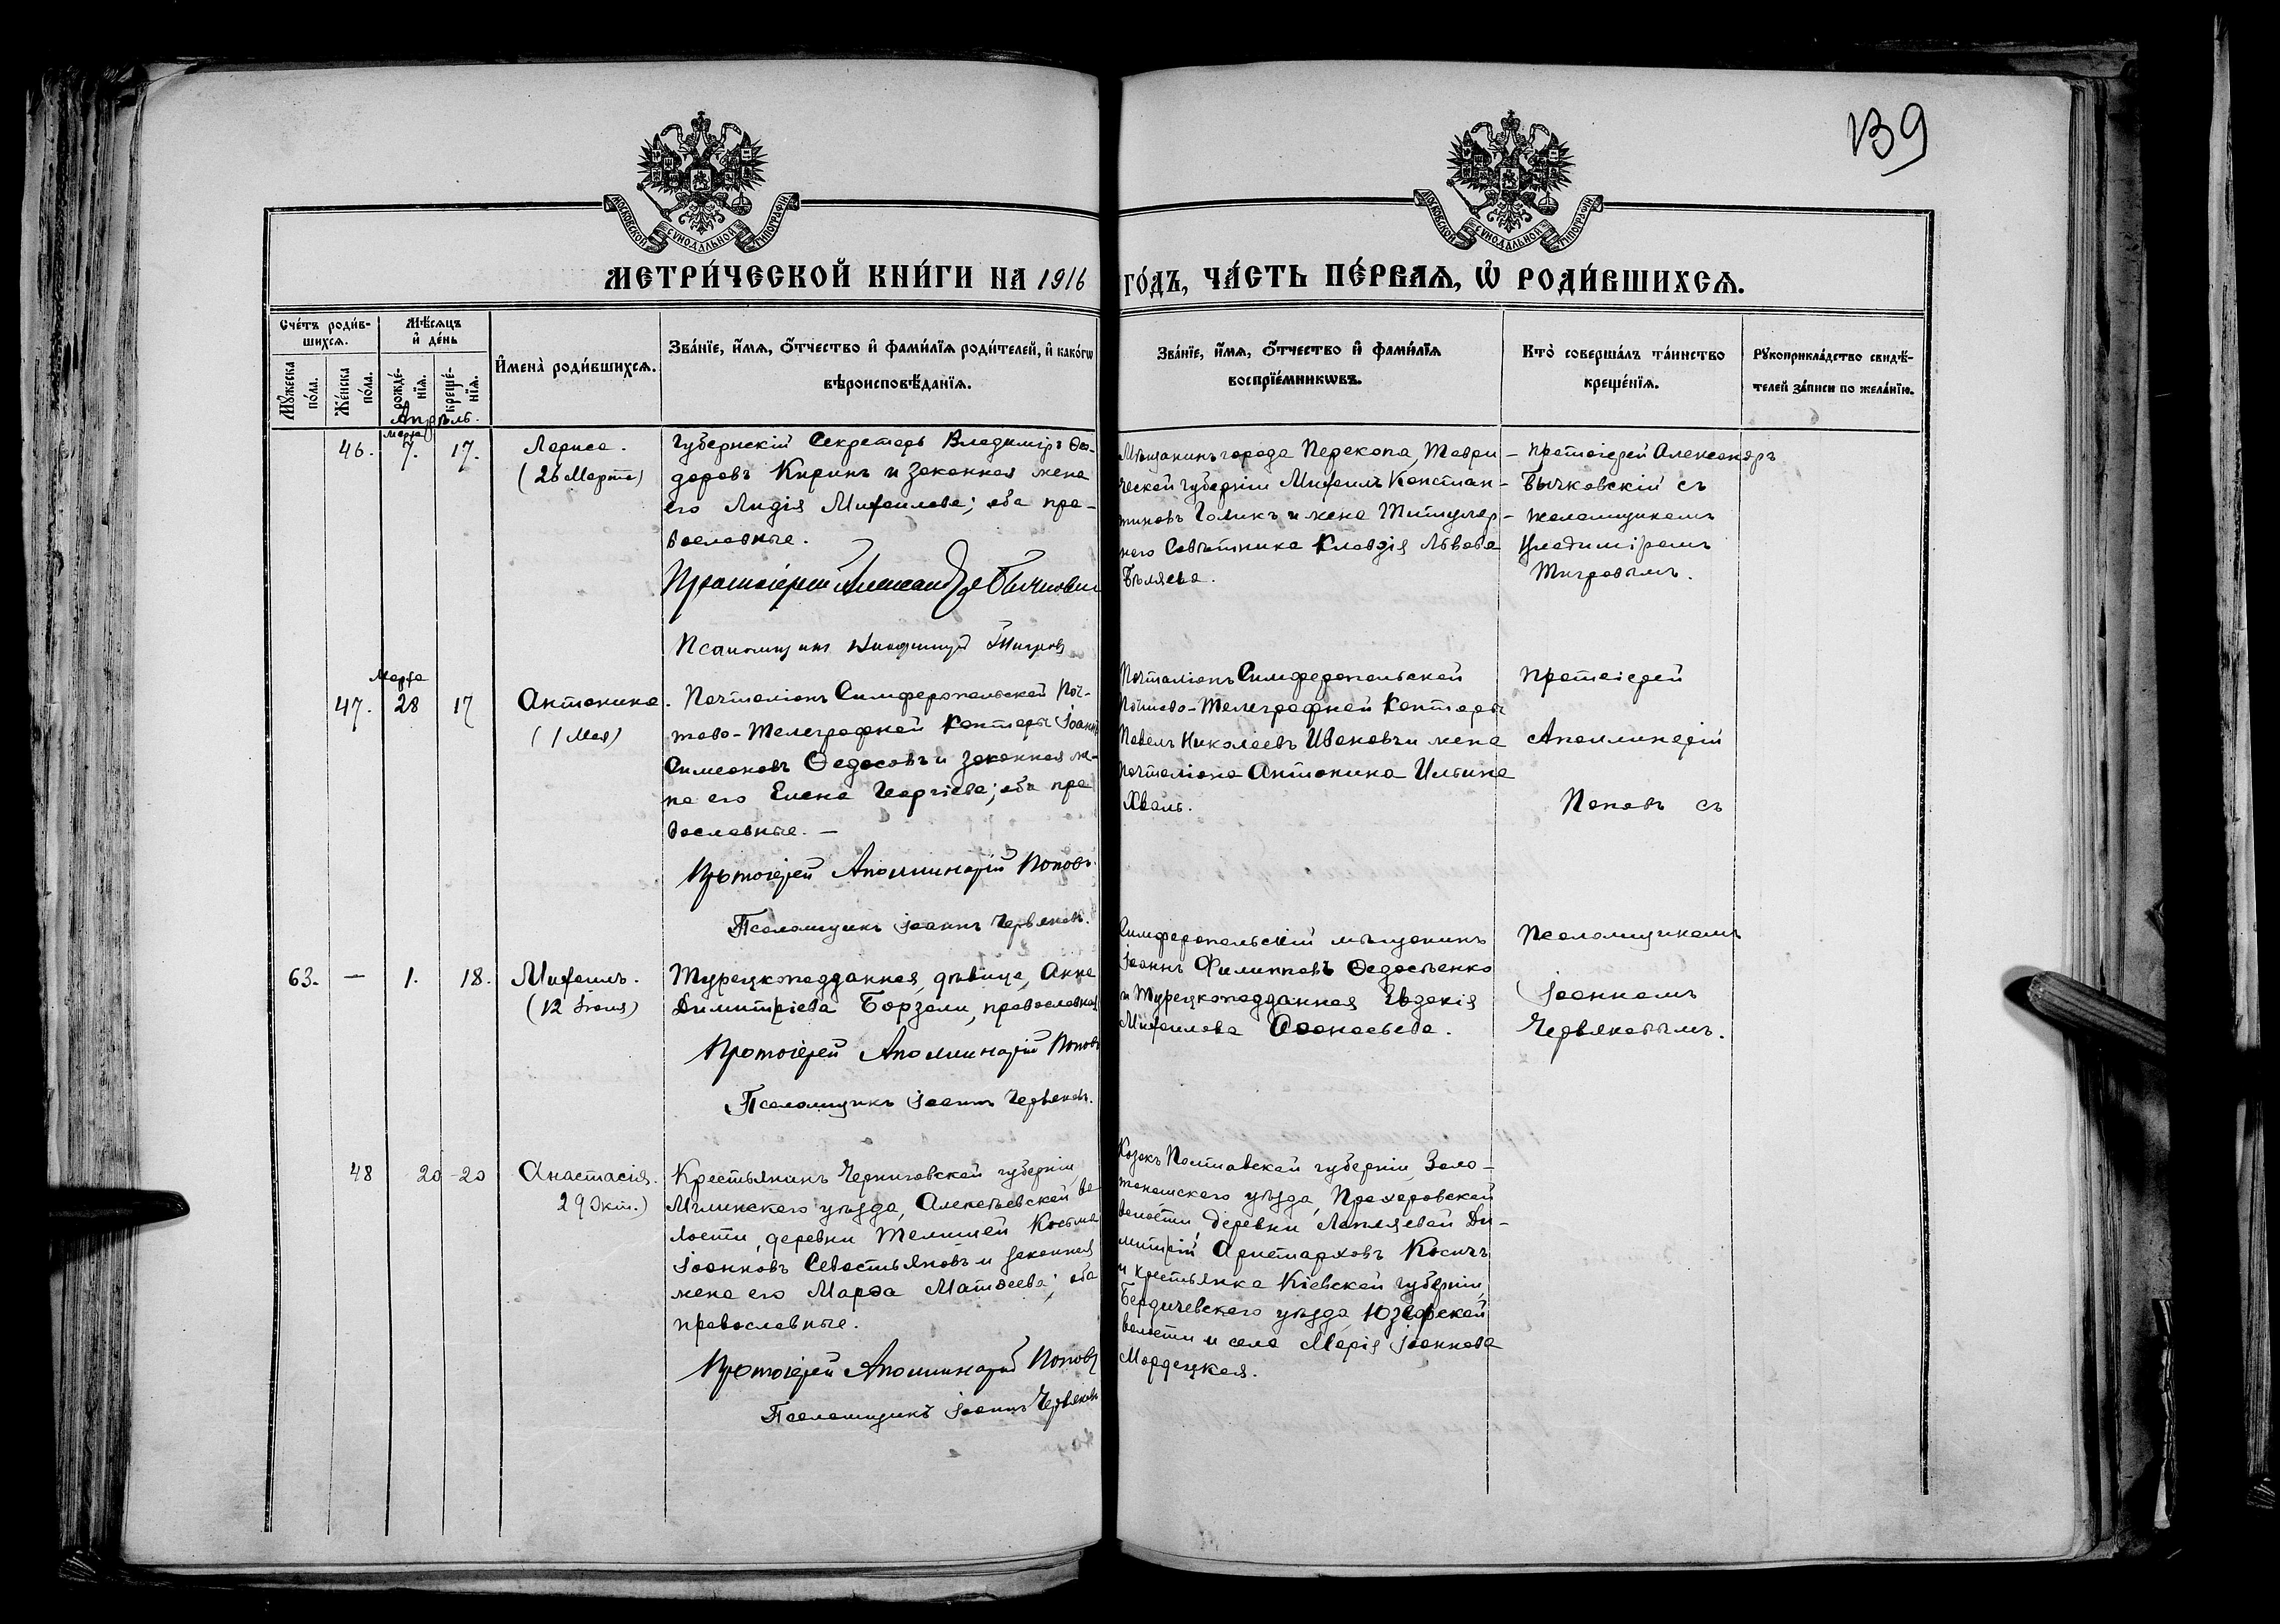 139
МОСКОВСКОЙ СѴНОДАЛЬНОЙ ТИПОГРАФІИ
МОСКОВСКОЙ СѴНОДАЛЬНОЙ ТИПОГРАФІИ
МЕТРИ́ЧЕСКОЙ КНИ́ГИ НА 1916 ГО́ДЪ, ЧА́СТЬ ПЕ́РВАѦ, Ѡ҆ РОДИ́ВШИХСѦ.
Сче́тъ роди́в-
шихсѧ.
Мꙋжеска по́ла.
Же́нска по́ла.
Мѣ́сѧцъ
и҆ де́нь
рожде́-
нїѧ.
креще́-
нїѧ.
И҆мена̀ роди́вшихсѧ.
Зва́нїе, и҆́мѧ, ѻ҆́тчество и҆ фами́лїѧ роди́телей, и҆ како́гѡ
вѣроисповѣ́данїѧ.
Зва́нїе, и҆́мѧ, ѻ҆́тчество и҆ фами́лїѧ
воспрїе́мникѡвъ.
Кто̀ соверша́лъ та́инство
креще́нїѧ.
Рꙋкоприкла́дство свидѣ́-
телей за́писи по жела́нїю.
Апрѣль.
46.
Марта
7.
17.
Лариса.
(26 Марта)
Губернскій Секретарь Владиміръ Ѳео-
доровъ Киринъ и законная жена
его Лидія Михаилова; оба пра-
вославные.
Протоіерей Александръ Бычковскій
Псаломщикъ Владиміръ Тигровъ
Мѣщанинъ города Перекопа, Таври-
ческой губерніи Михаилъ Констан-
тиновъ Голикъ и жена Титуляр-
наго Совѣтника Клавдія Львова
Бѣляева.
Протоіерей Александръ
Бычковскій съ
псаломщикомъ
Владиміромъ
Тигровымъ.
47.
Марта
28
17
Антонина.
(1 Мая)
Почталіонъ Симферопольской Поч-
тово-Телеграфной Конторы Іоаннъ
Симеоновъ Ѳедосовъ и законная же-
на его Елена Георгіева; оба пра
вославные. —
Протоіерей Аполлинарій Поповъ.
Псаломщикъ Іоаннъ Червяковъ.
Почталіонъ Симферопольской
Почтово-Телеграфной Конторы
Павелъ Николаевъ Ивановъ и жена
почталіона Антонина Ильина
Хваль.
Протоіерей
Аполлинарій
Поповъ съ
Псаломщикомъ
Іоанномъ
Червяковымъ.
63.
—
1.
18.
Михаилъ.
(12 Іюля)
Турецкоподданная, дѣвица, Анна
Димитріева Борзали, православная
Протоіерей Аполлинарій Поповъ
Псаломщикъ Іоаннъ Червяковъ.
Симферопольскій мѣщанинъ
Іоаннъ Филипповъ Ѳедосѣенко
и Турецкоподданная Евдокія
Михаилова Аѳонасьева.
48
20
-20
Анастасія.
29 Окт.)
Крестьянинъ Черниговской губерніи,
Мглинскаго уѣзда, Алексѣевской во
лости, деревни Косьма
Іоанновъ Севастьяновъ и законная
жена его Марѳа Матѳеева; оба
православные.
Протоіерей Аполлинарій Поповъ
Псаломщикъ Іоаннъ Червяковъ
Козакъ Полтавской губерніи, Золо-
тоношскаго уѣзда, Прохоровской
волости, деревни Ди-
митрій Аристарховъ Косичъ
и крестьянка Кіевской губерніи,
Бердичевскаго уѣзда Юзефской
волости и села Марія Іоаннова
Мордецкая.